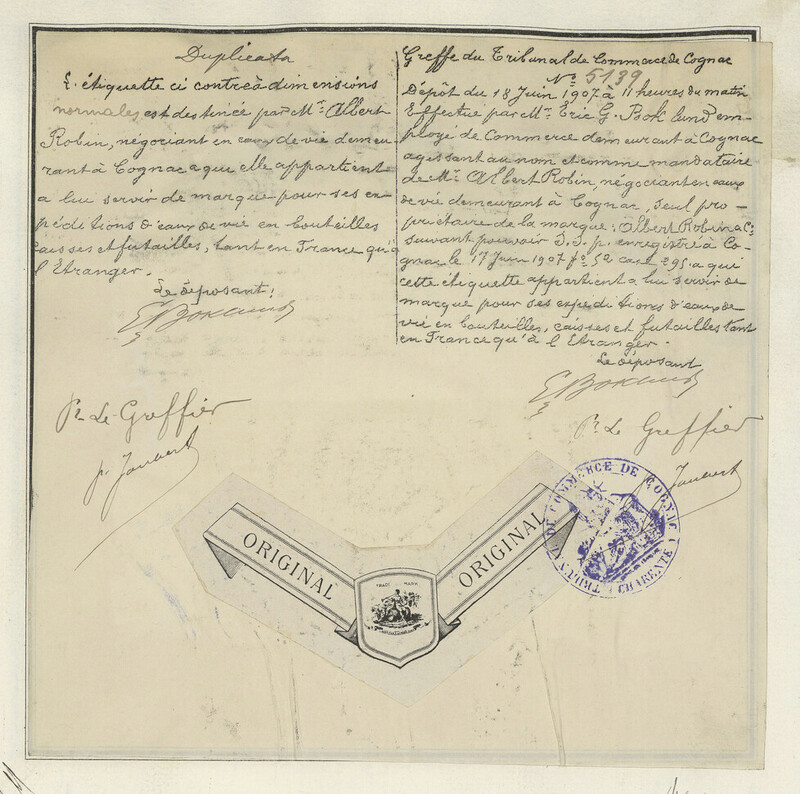 Duplicata
L'étiquette ci contre à dimensions
normales est destinée par Mr. Albert
Robin, négociant en eaux de vie demeu-
rant à Cognac a qui elle appartient
a lui servir de marque pour ses ex-
péditions d'eaux de vie en bouteilles
caisses et futailles, tant en France qu'à
l'Etranger.
Le déposant:
E G Boklund
Pr. Le Greffier
p. Jaubert
Greffe du Tribunal de Commerce de Cognac
No 5139
Dépôt du 18 Juin 1907 à 11 heures du matin
Effectué par Mr. Eric G. Boklund em-
ployé de Commerce demeurant à Cognac
agissant au nom et comme mandataire
de Mr. Albert Robin, négociant en eaux
de vie demeurant à Cognac, seul pro-
priétaire de la marque: Albert Robin & Co
suivant pouvoir S.S.p. enregistré à Co-
gnac le 17 Juin 1907 fo 52 case 95. a qui
cette étiquette appartient a lui servir de
marque pour ses expeditions d'eaux de
vie en bouteilles, caisses et futailles tant
en France qu'à l'Etranger.
Le déposant
E G Boklund
Pr. Le Greffier
Jaubert
TRIBUNAL DE COMMERCE DE COGNAC
CHARENTE
ORIGINAL
ORIGINAL
TRADE MARK